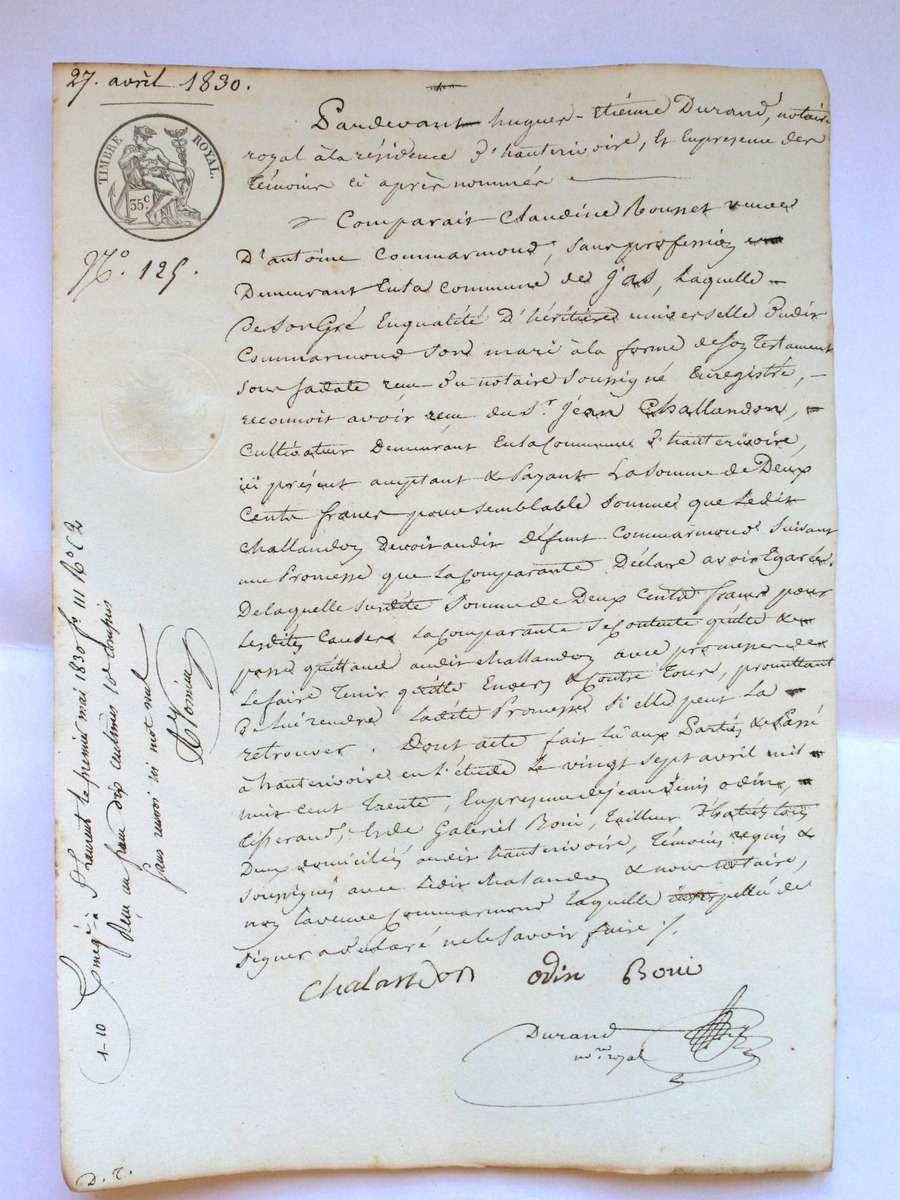 27. avril 1830.
TIMBRE ROYAL.
35c
No. 125.
Pardevant hugues-Etienne Durand, notaire
royal à la résidence d'hauterivoire, et En presence des
Témoins ci après nommés
Comparait Claudine Rousset veuve
D'antoine Commarmond, sans profession
Demeurant En la commune de Jas, Laquelle
De son Gré En qualité D'héritière universelle dudit
Commarmond son mari à la forme de son Testament
sous sa date recu du notaire soussigné Enregistré,
reconnoit avoir recu du Sr. Jean Challandon,
Cultivateur Demeurant En la Commune d'hauterivoire,
ici présent acceptant & Payant La somme de Deux
Cents francs pour semblable somme que Ledit
Challandon Devoit audit Défunt Commarmond suivant
une Promesse que La Comparante Déclare avoir Egarée.
De laquelle susdite somme de Deux Cents francs pour
Lesdites Causes La Comparante se Contente quitte &
passe quittance audit Challandon avec promesse de
Le faire Tenir quitte Envers & Contre Tous, promettant
De lui rendre Ladite Promesse si elle peut La
retrouver. Dont acte fait lu aux Parties & Passé
à hauterivoire en l'étude Le vingt sept avril mil
huit cent trente, En presence de jean Denis odin,
tisserand, et de Gabriel Boni, Tailleur d'habits tous
Deux domiciliés audit hauterivoire, Témoins requis &
soussignés avec Ledit Chalandon & nous notaire,
non La veuve Commarmond laquelle interpellée de
signer a déclaré ne le savoir faire /.
Chalandon odin Boni
Durand
nore royal
Enregé à St Laurent le premier mai 1830 fo 111 Ro C 2
Reçu un franc dix centimes 10e compris
sans renvoi ni mot nul
1-10
D. r.